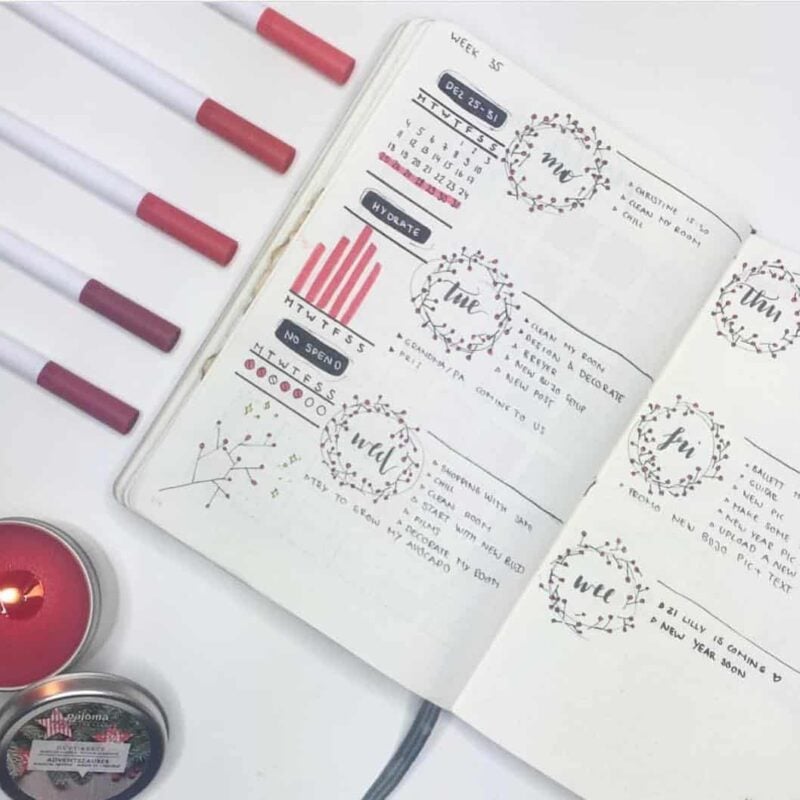 WEEK 35
DEZ 25-31
M T W T F S S
1 2 3
4 5 6 7 8 9 10
11 12 13 14 15 16 17
18 19 20 21 22 23 24
25 26 27 28 29 30 31
HYDRATE
M T W T F S S
NO SPEND
M T W T F S S
mo
CHRISTINE 15:30
CLEAN MY ROOM
CHILL
tue
CLEAN MY ROOM
DESIGN & DECORATE
NEW BUJO SETUP
NEW POST
GRANDMA/PA COMING TO US
wed
SHOPPING WITH
CHILL
CLEAN ROOM
START WITH NEW BUJO
FILMS
DECORATE MY ROOM
TRY TO GROW MY AVOCADO
thu
fri
BALLETT
GUIDE
NEW PIC
MAKE SOME
NEW YEAR PIC
UPLOAD A NEW
PROMO NEW BUJO PIC + TEXT
wee
31 LILLY IS COMING ♡
NEW YEAR SOON
pajoma
ADVENTSZAUBER